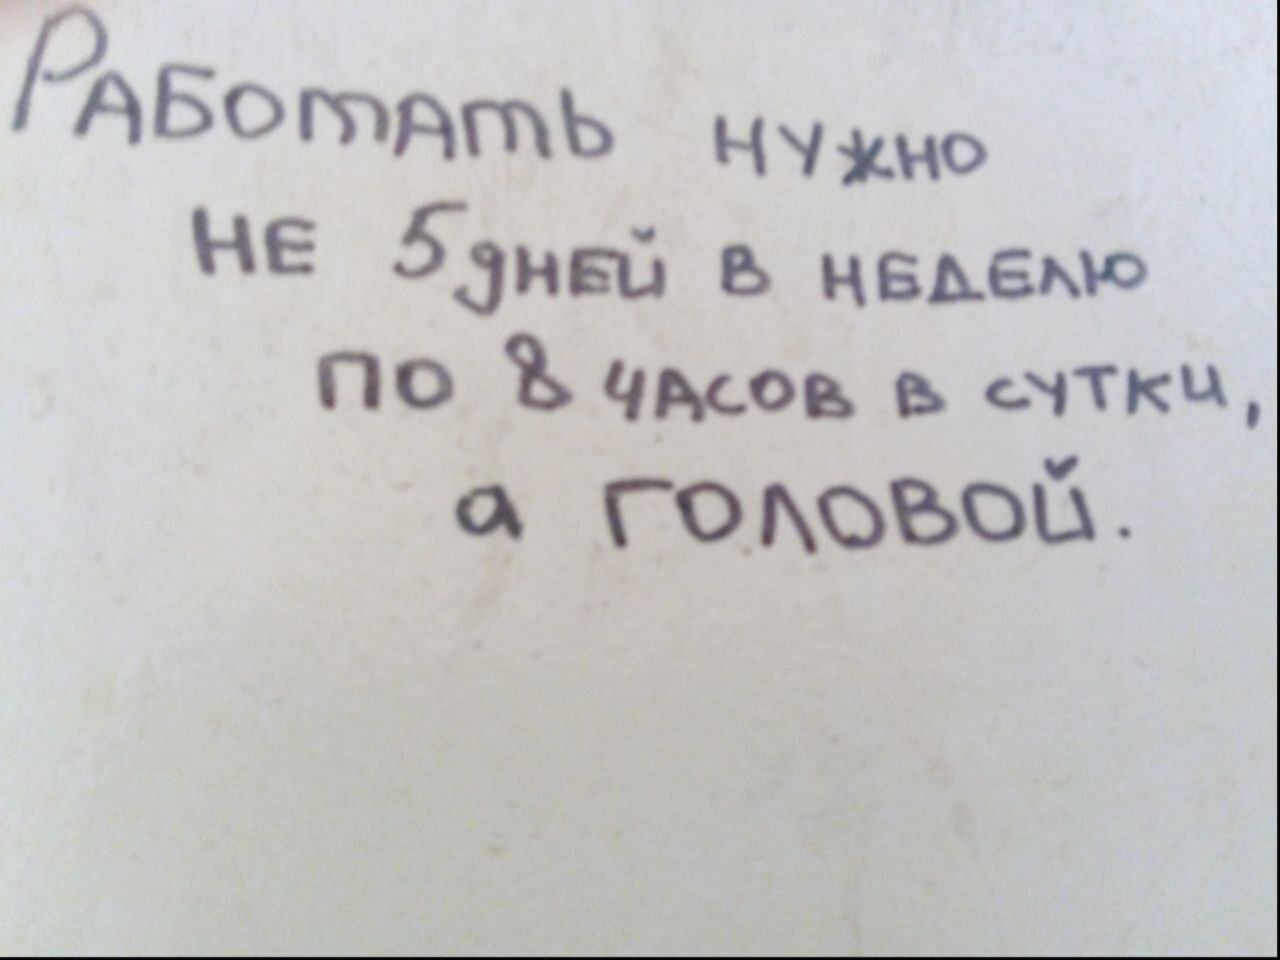 Работать нужно
не 5 дней в неделю
по 8 часов в сутки,
а головой.